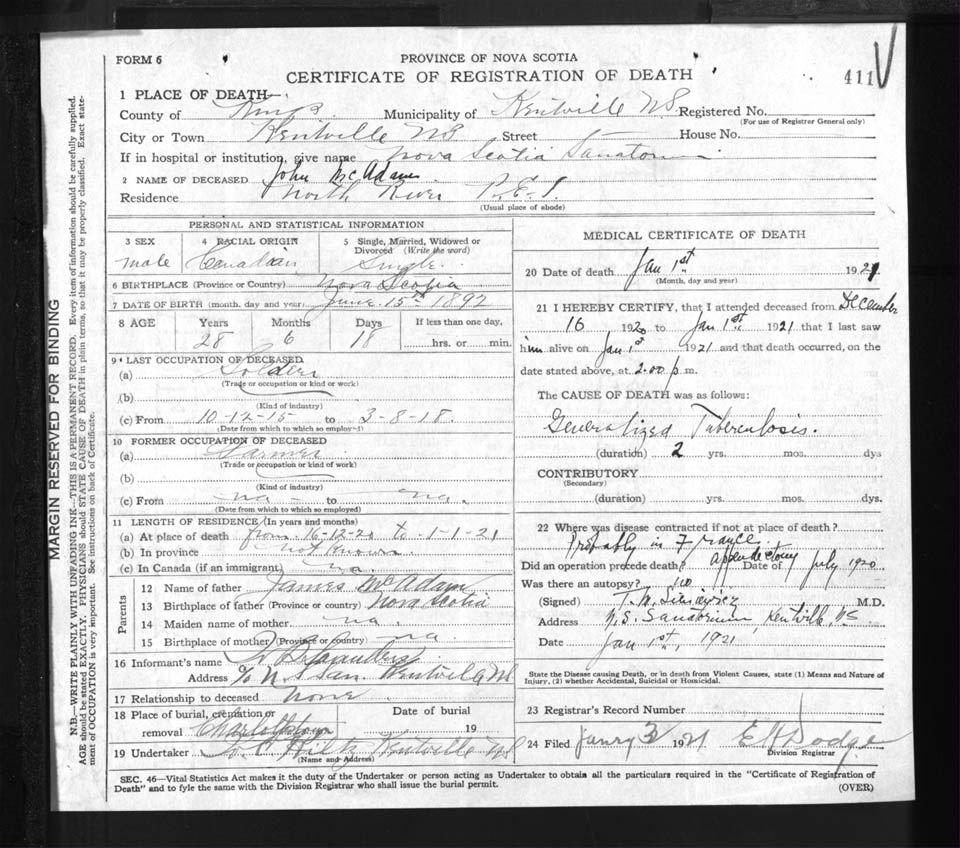 FORM 6
PROVINCE OF NOVA SCOTIA
CERTIFICATE OF REGISTRATION OF DEATH
411
1 PLACE OF DEATH—
County of Kings Municipality of Kentville N.S. Registered No.
(For use of Registrar General only)
City or Town Kentville N.S. Street House No.
If in hospital or institution, give name Nova Scotia
2 NAME OF DECEASED John McAdam
Residence North River P.E.I.
(Usual place of abode)
PERSONAL AND STATISTICAL INFORMATION
3 SEX
male
4 RACIAL ORIGIN
Canadian
5 Single, Married, Widowed or Divorced (Write the word)
Single
6 BIRTHPLACE (Province or Country) Nova Scotia
7 DATE OF BIRTH (month, day and year) June 15th 1892
8 AGE Years Months Days If less than one day,
28 6 18 hrs. or min.
9 LAST OCCUPATION OF DECEASED
(a) Soldier
(Trade or occupation or kind or work)
(b)
(Kind of industry)
(c) From 10-12-15 to 3-8-18.
(Date from which to which so employed)
10 FORMER OCCUPATION OF DECEASED
(a) Farmer
(Trade or occupation or kind of work)
(b)
(Kind of industry)
(c) From na to na.
(Date from which to which so employed)
11 LENGTH OF RESIDENCE (In years and months)
(a) At place of death from 16-12-20 to 1-1-21
(b) In province not known
(c) In Canada (if an immigrant) na.
Parents
12 Name of father James McAdam
13 Birthplace of father (Province or country) Nova Scotia
14 Maiden name of mother na.
15 Birthplace of mother (Province or country) na.
16 Informant's name Saunders
Address c/o N.S. San. Kentville N.S.
17 Relationship to deceased none
18 Place of burial, cremation or removal Charlottetown Date of burial 19
19 Undertaker Hiltz Kentville N.S.
(Name and Address)
MEDICAL CERTIFICATE OF DEATH
20 Date of death Jan 1st 1921
(Month, day and year)
21 I HEREBY CERTIFY, that I attended deceased from December
16 1920 to Jan 1st 1921 that I last saw
him alive on Jan 1st 1921 and that death occurred, on the
date stated above, at 2.00 p.m.
The CAUSE OF DEATH was as follows:
Generalized Tuberculosis.
(duration) 2 yrs. mos. dys
CONTRIBUTORY
(Secondary)
(duration) yrs. mos. dys.
22 Where was disease contracted if not at place of death?
Probably in France.
Did an operation precede death? Appendectomy Date of July 1920
Was there an autopsy? no
(Signed) M.D.
Address N.S. Sanatorium, Kentville, N.S.
Date Jan 1st, 1921
State the Disease causing Death, or in death from Violent Causes, state (1) Means and Nature of Injury, (2) whether Accidental, Suicidal or Homicidal.
23 Registrar's Record Number
24 Filed Janry 3 1921 E H Dodge
Division Registrar
SEC. 46—Vital Statistics Act makes it the duty of the Undertaker or person acting as Undertaker to obtain all the particulars required in the "Certificate of Registration of
Death" and to fyle the same with the Division Registrar who shall issue the burial permit.
(OVER)
MARGIN RESERVED FOR BINDING
N.B.—WRITE PLAINLY WITH UNFADING INK—THIS IS A PERMANENT RECORD. Every item of information should be carefully supplied.
AGE should be stated EXACTLY. PHYSICIANS should STATE CAUSE OF DEATH in plain terms, so that it may be properly classified. Exact statement of OCCUPATION is very important. See instructions on back of Certificate.